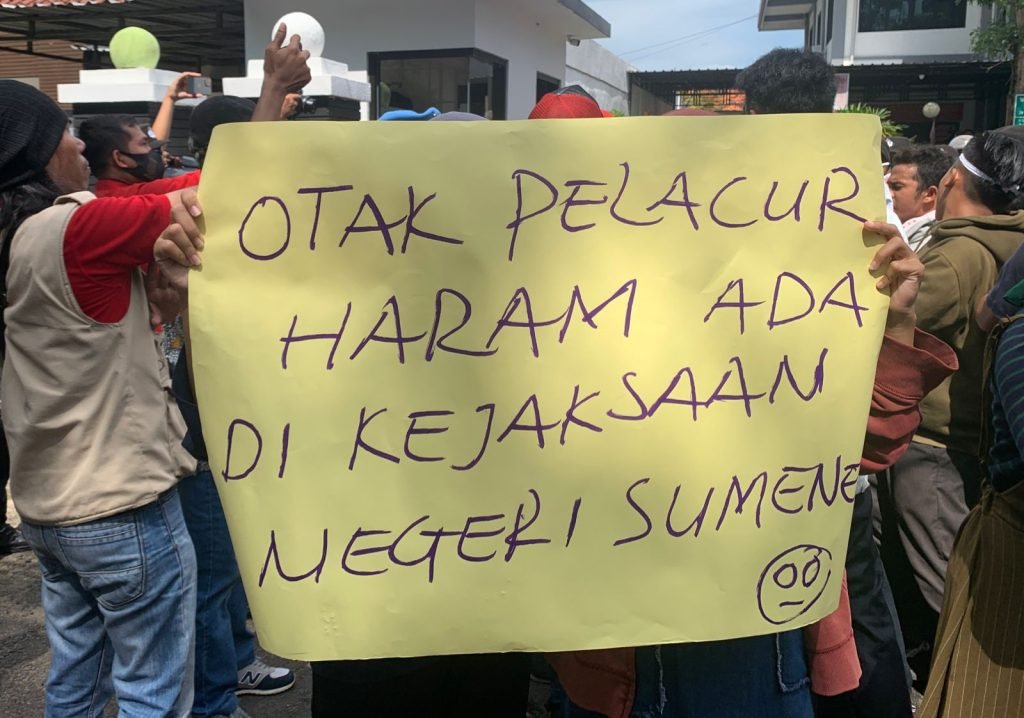 OTAK PELACUR
HARAM ADA
DI KEJAKSAAN
NEGERI SUMENE